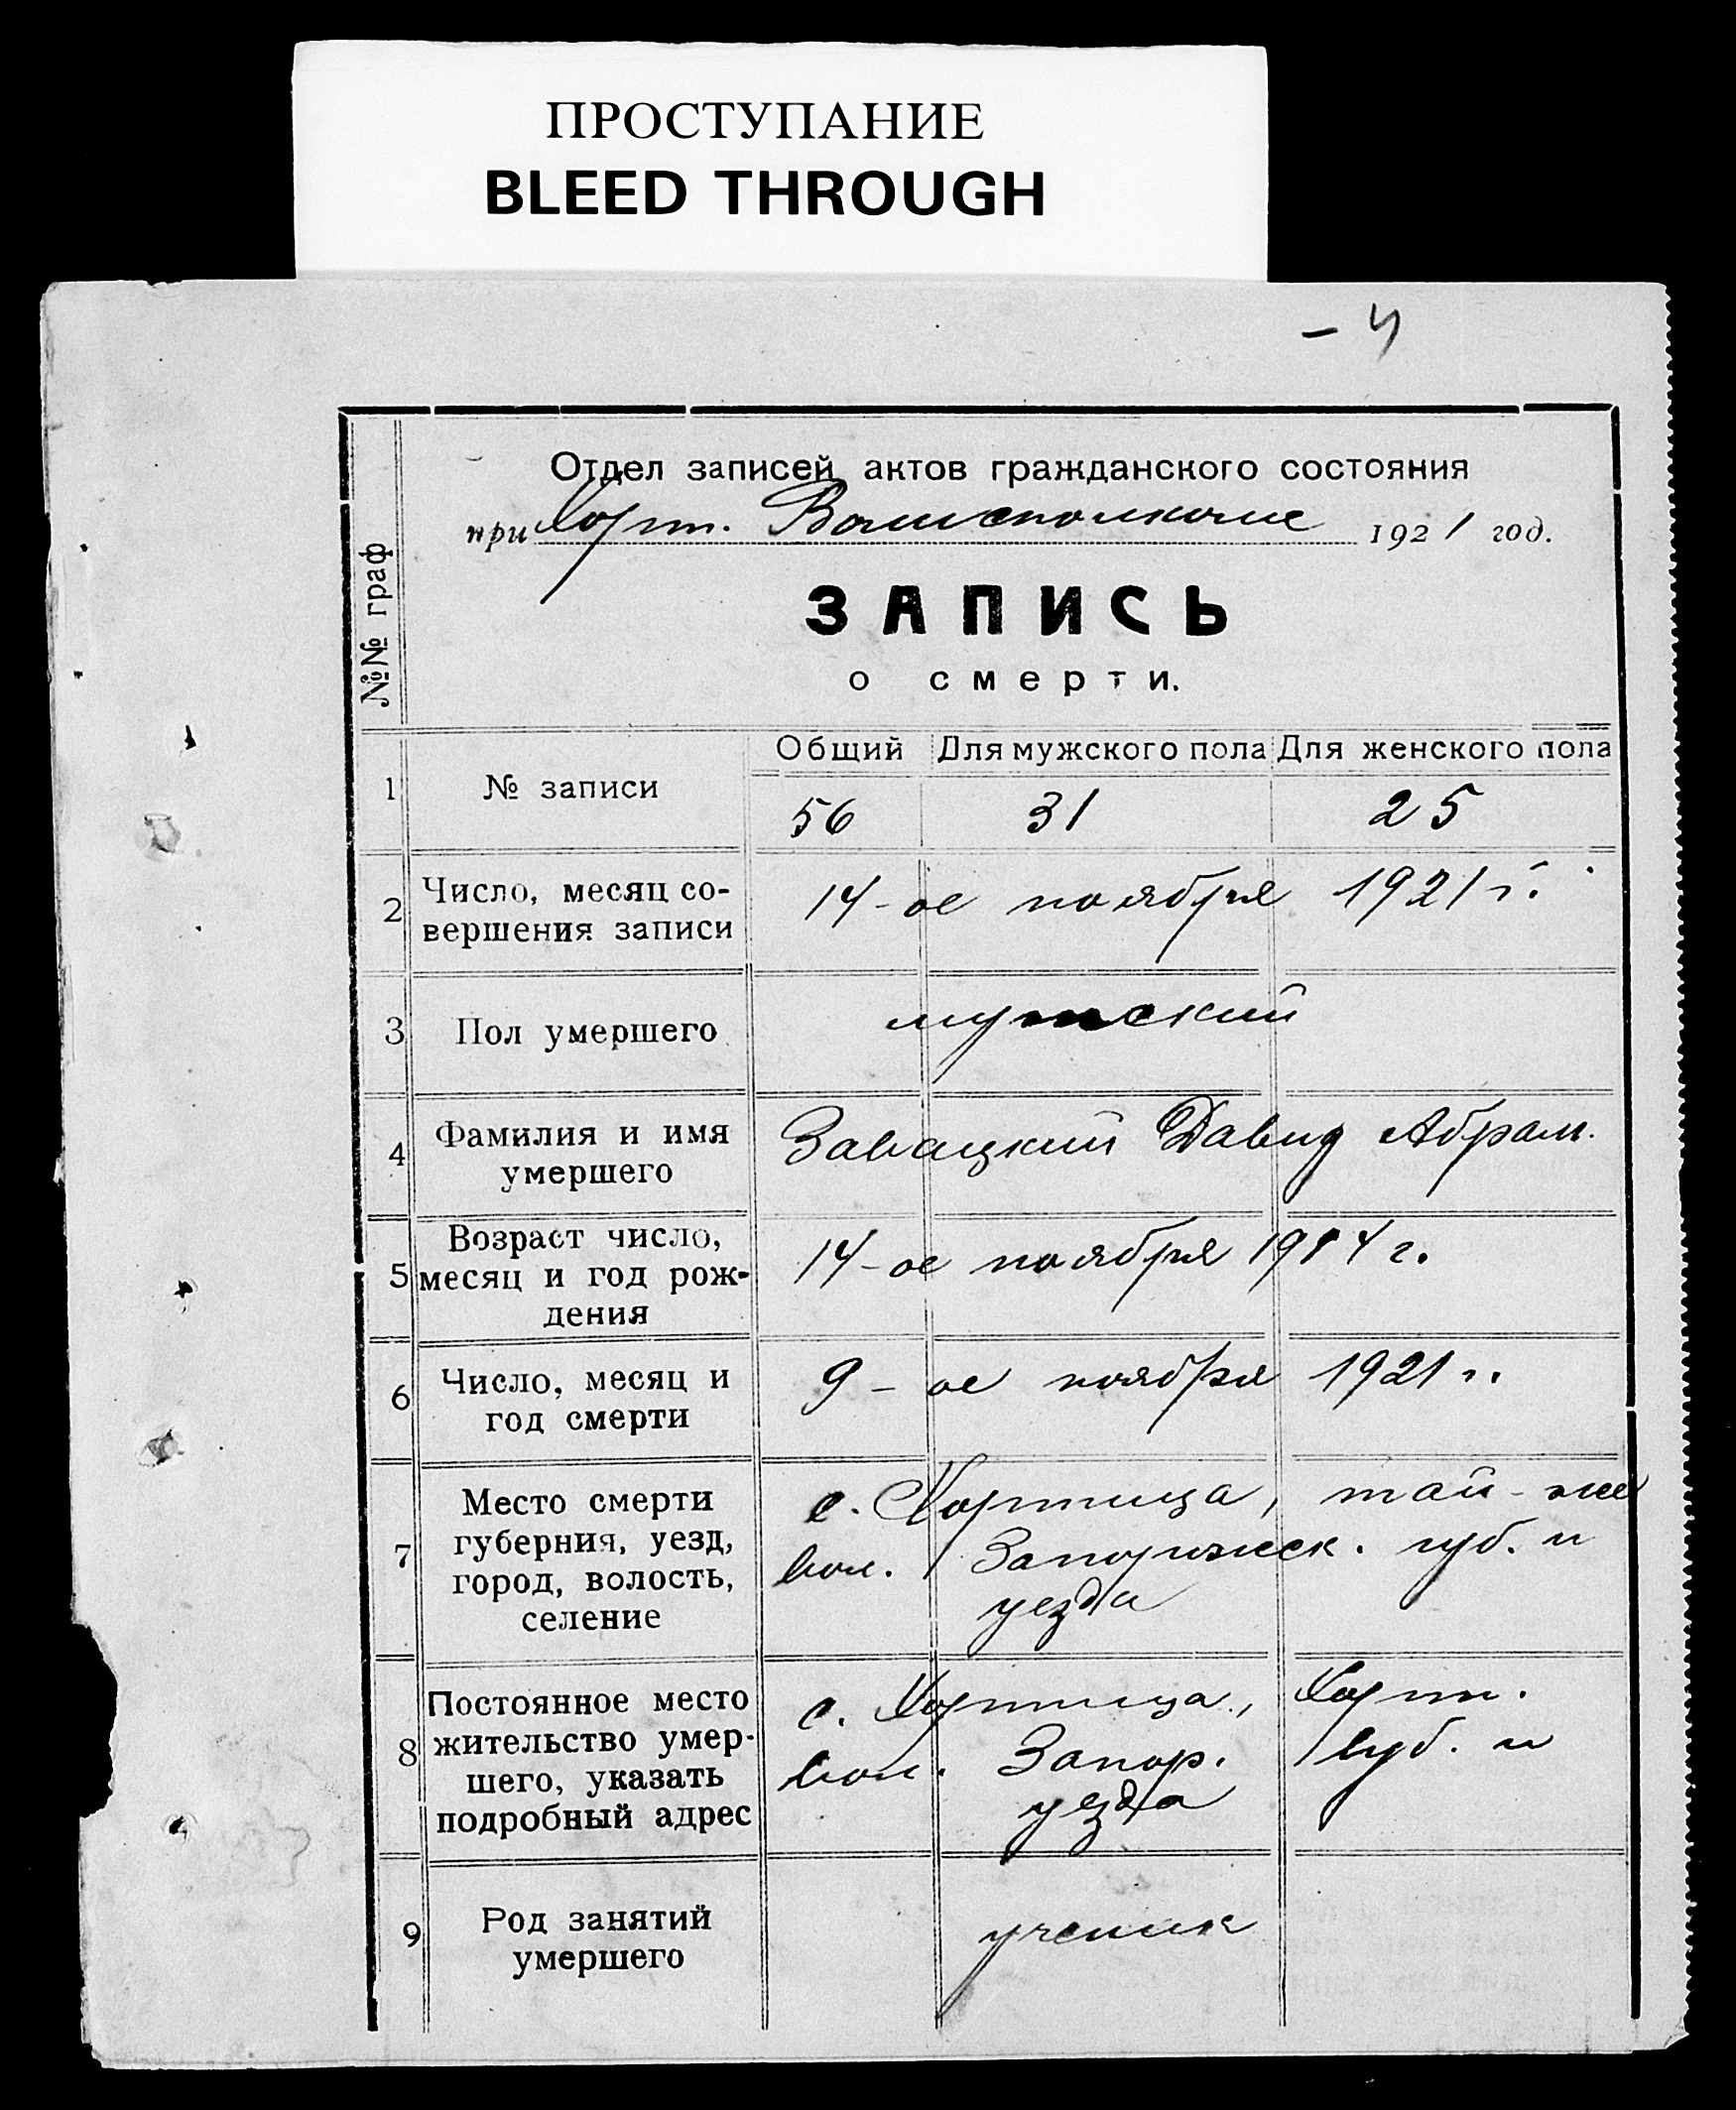 ПРОСТУПАНИЕ
BLEED THROUGH
– 4
Отдел записей актов гражданского состояния
при Хорт. Волисполкоме 1921 год.
№№ граф
ЗАПИСЬ
о смерти.
Общий Для мужского пола Для женского пола
1 № записи
56 31 25
2 Число, месяц со-
вершения записи
14-ое ноября 1921 г.
3 Пол умершего
мужской
4 Фамилия и имя
умершего
Завацкий Давид Абрам.
5 Возраст число,
месяц и год рож-
дения
14-ое ноября 1914 г.
6 Число, месяц и
год смерти
9-ое ноября 1921 г.
7 Место смерти
губерния, уезд,
город, волость,
селение
с. Хортица, той-же
вол. Запорожск. губ. и
уезда
8 Постоянное место
жительство умер-
шего, указать
подробный адрес
с. Хортица, Хорт.
вол. Запор. губ. и
уезда
9 Род занятий
умершего
ученик